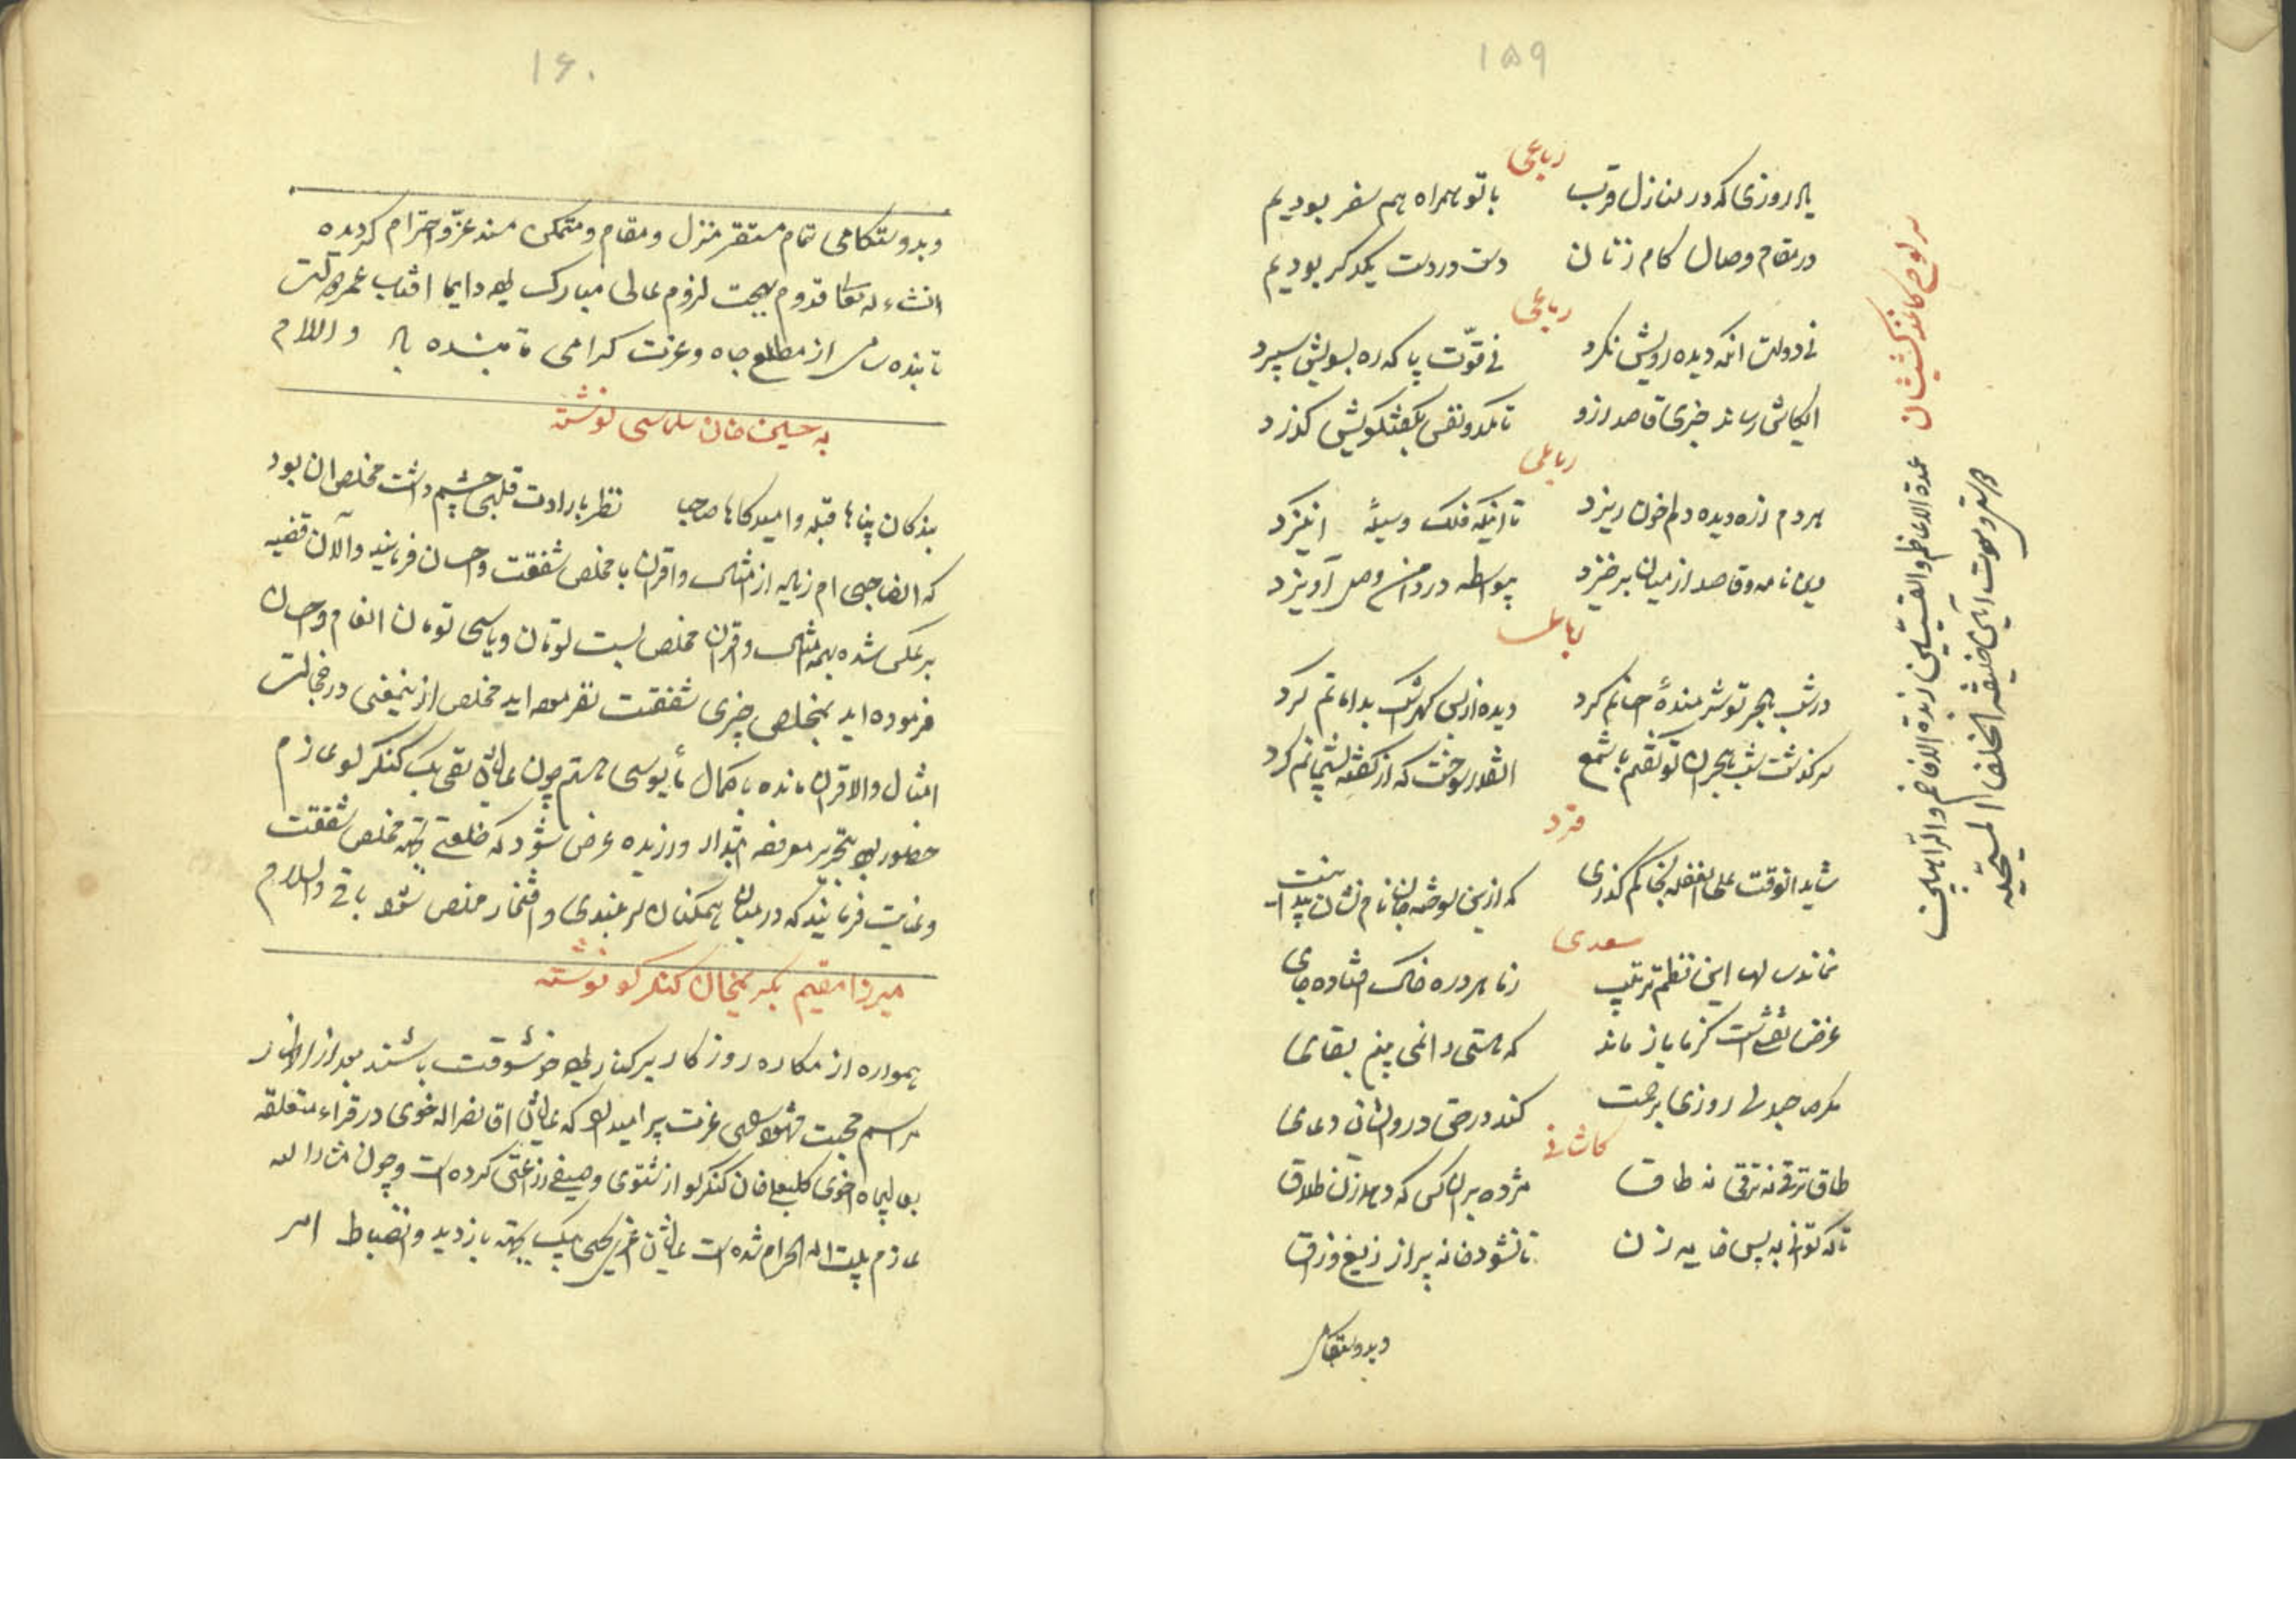 ۱۵۹
رباعی
یاد روزی که در منازل قرب با تو همراه هم سفر بودیم
در مقام وصال کام زنان دست در دست یکدکر بودیم
رباعی
نی دولت آنکه دیده رویش نکرد نی قوّت پا که ره بسویش سپرد
ایکاش رساند خبری قاصد ازو تا یکدو نفس بکفتکویش کذرد
رباعی
هردم زره دیده دلم خون ریزد تا اینکه فلک وسیلهٔ انکیزد
این نامه و قاصد از میان برخیزد بیواسطه در دامن وصل آویزد
رباعی
در شب هجر تو شرمندهٔ احسانم کرد دیده از بس کهر اشک بدامانم کرد
سرکذشت شب هجران تو کفتم با شمع آنقدر سوخت که از کفته پشیمانم کرد
فرد
شاید آنوقت علی الغفله بخاکم کذری که ازین سوخته جان نام و نشان پیدا نیست
سعدی
بماند سالها این نظم ترتیب زما هر ذره خاک افتاده جای
غرض نقشی است کز ما باز ماند که هستی را نمی بینم بقای
مکر صاحبدلی روزی برحمت کند در حق درویشان دعای
کاشانی
طاق ترقی نه ترقی نه طاق مژده بر آن کس که دهد زن طلاق
تا که توانی به پس خایه زن تا نشود خانه پر از زیغ و زاق
وبدوستکامی
سر لوح کاغذ کشیشان
عمدة الاعاظم والقسّیسین زبدة الافاخم والرّاهبین
۱۶۰
وبدوستکامی تمام مستقر منزل و مقام و متمکن مسند عزّ و احترام کردیده
انشاءالله تعالی قدوم بهجت لزوم عالی مبارک بوده دایما افتاب عمر و دولت
تابنده سامی از مطلع جاه و عزت کرامی تابنده باد والسلام
به حسین خان سلماسی نوشته
بندکان پناها قبله و امیدکاها صاحب نظر بارادت قلبی چشم داشت مخلص آن بود
که الطاف صاحبی ام زیاده از امثال و اقران با مخلص شفقت و احسان فرمایند والآن قضیه
برعکس شده بهمه امثال و اقران مخلص بیست تومان و یا سی تومان انعام و احسان
فرموده اید بمخلص چیزی شفقت نفرموده اید مخلص ازینمعنی در خجالت
امثال والاقران مانده با کمال مأیوسی هستم چون عالیشان تقی بیک کنکرلو عازم
حضور بود بتحریر معروضه ابتدار ورزیده عرض شود که خلعتی بجهة مخلص شفقت
و عنایت فرمایند که در میان همکنان سربلندی و افتخار مخلص شود باقی والسلام
میرزا مقیم بکریمخان کنکرلو نوشته
همواره از مکاره روزکار برکنار بوده خوشوقت باشند بعد از اظهار
مراسم محبت مشهود رای عزت پیرا میدارد که عالیشان اقا نصرالله خوی در قراء متعلقه
بعالیجاه اخوی کلبعلی خان کنکرلو از شتوی و صیفی زراعتی کرده است و چون مشارالیه
عازم بیت الله الحرام شده است عالیشان یحیی بیک بجهة بازدید و انضباط امر